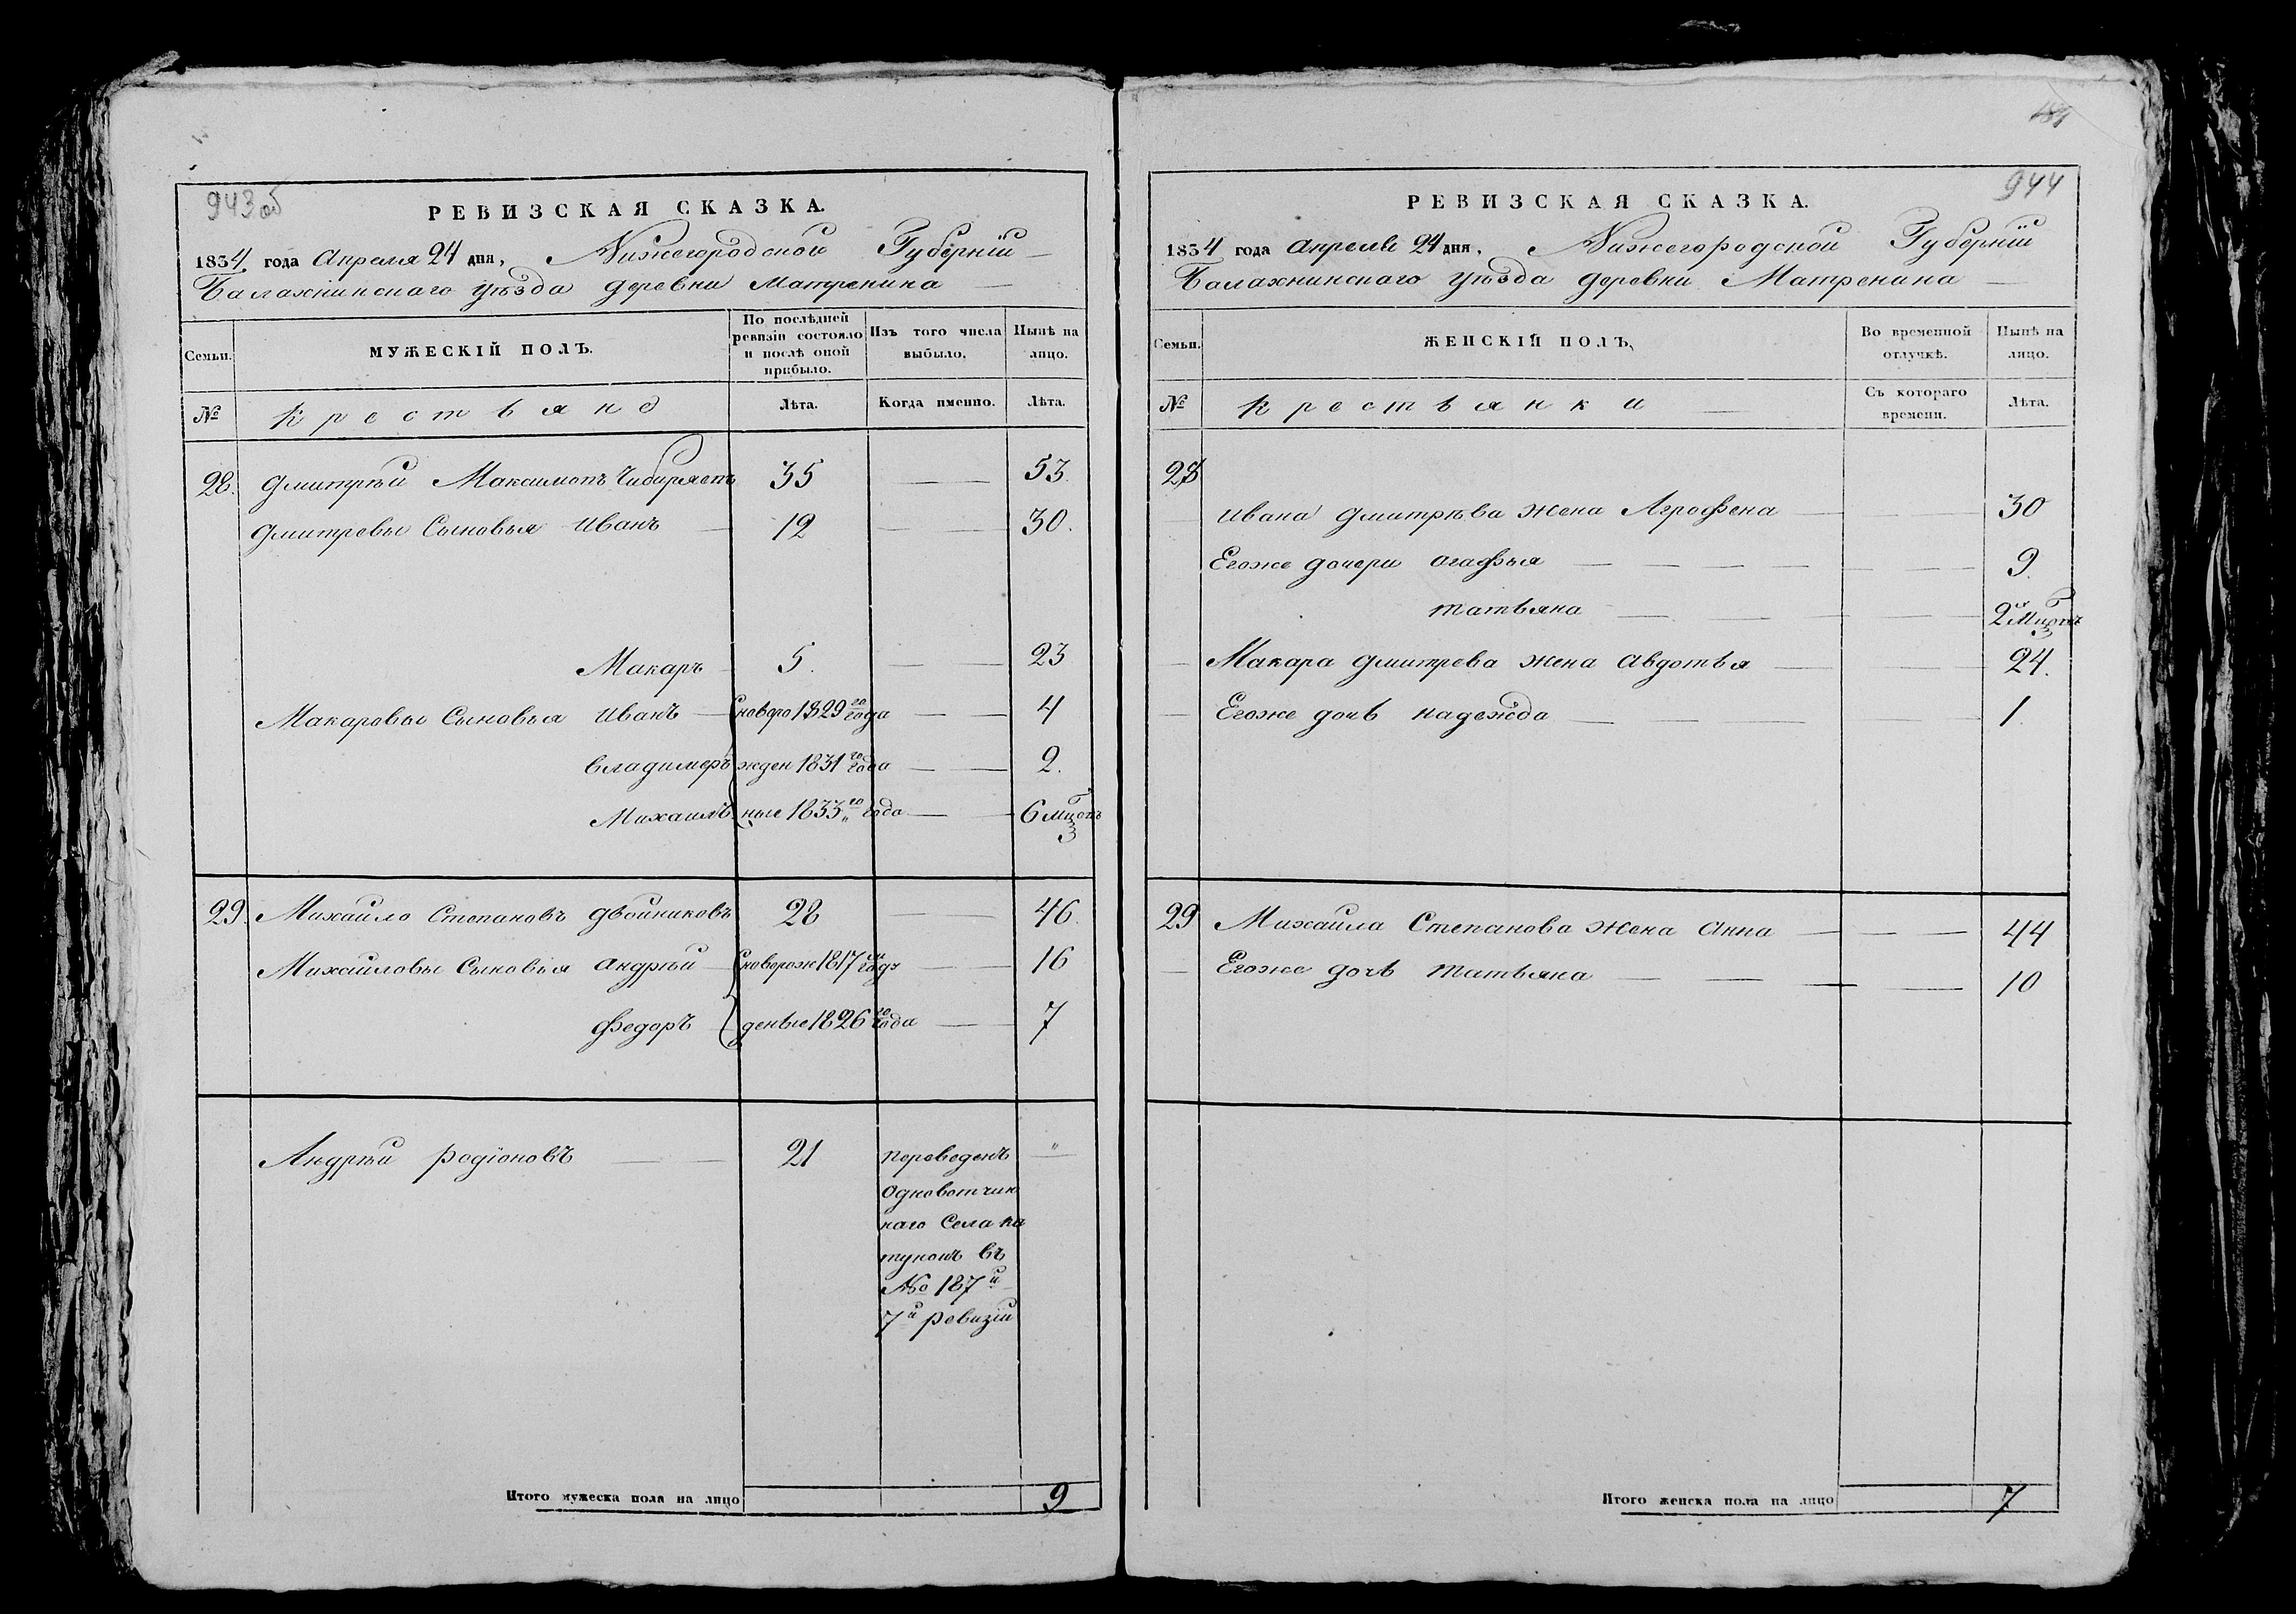 943 об
РЕВИЗСКАЯ СКАЗКА.
1834 года Апреля 24 дня, Нижегородской Губерніи
Балахнинскаго уѣзда деревни Матренина
Семьи.
МУЖЕСКІЙ ПОЛЪ.
По послѣдней ревизіи состояло и послѣ оной прибыло.
Изъ того числа выбыло.
Нынѣ на лицо.
№
Крестьянъ
Лѣта.
Когда именно.
Лѣта.
28. Дмитрѣй Максимовъ 35 53.
Дмитревы Сыновья Иванъ 12 30.
Макаръ 5. 23
Макаровы Сыновья Иванъ новоро 1829го года 4
Владимеръ жден 1831го года 2.
Михаилъ ные 1833го года 6 м
29. Михайло Степановъ Двойниковъ 28 46.
Михайловы Сыновья Андрѣй новорож 1817м году 16
Федоръ деные 1826го года 7
Андрѣй Родіоновъ 21 переведенъ "
Одновотчин
наго Села Ка
тунокъ въ
№ 187й
7й ревизіи
Итого мужеска пола на лицо 9
184
944
РЕВИЗСКАЯ СКАЗКА.
1834 года Апреля 24 дня, Нижегородской Губерніи
Балахнинскаго уѣзда деревни Матренина
Семьи.
ЖЕНСКІЙ ПОЛЪ,
Во временной отлучкѣ.
Нынѣ на лицо.
№
Крестьянки
Съ котораго времени.
Лѣта.
28
Ивана Дмитрѣва жена Агрофена 30
Егоже дочери Огафья 9.
Татьяна 2
Макара Дмитрева жена Авдотья 24.
Егоже дочь Надежда 1.
29 Михайла Степанова жена Анна 44
Егоже дочь Татьяна 10
Итого женска пола на лицо 7